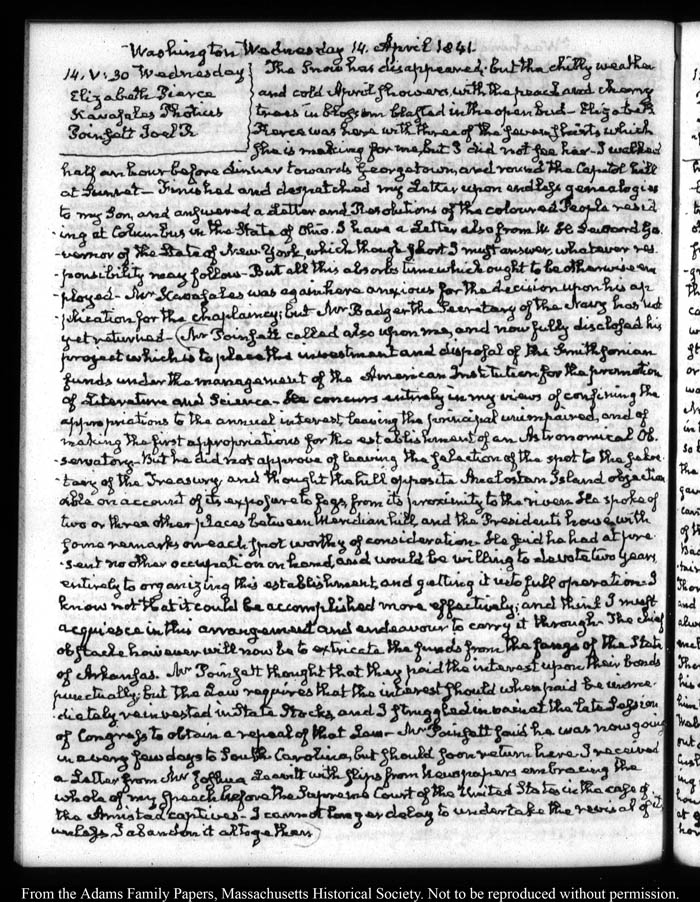 Washington Wednesday 14. April 1841.
14. V:30 Wednesday
Elizabeth Pierce
Kavasales Photius
Poinsett Joel R
The Snow has disappeared; but the chilly weather
and cold April showers, with the peach and cherry
trees in blossom blasted in the open bud— Elizabeth
Pierce was here with three of the seven shirts which
She is making for me, but I did not see her— I walked
half an hour before dinner towards Georgetown, and round the Capitol hill
at Sunset— Finished and despatched my Letter upon endless genealogies
to my Son, and answered a Letter and Resolutions of the coloured People resid-
-ing at Columbus in the State of Ohio. I have a Letter also from W H Seward Go-
-vernor of the State of New-York, which though short I must answer, whatever res-
-ponsibility may follow— But all this absorbs time which ought to be otherwise em-
-ployed— Mr Kavasales was again here anxious for the decision upon his ap-
-plication for the chaplaincy; but Mr Badger the Secretary of the Navy has not
yet returned— Mr Poinsett called also upon me, and now fully disclosed his
project which is to place the investment and disposal of the Smithsonian
funds under the management of the American Institution for the promotion
of Literature and Science— He concurs entirely in my views of confining the
appropriations to the annual interest, leaving the principal unimpaired, and of
making the first appropriations for the establishment of an Astronomical Ob-
-servatory— But he did not approve of leaving the selection of the spot to the Secre-
-tary of the Treasury, and thought the hill opposite Analostan Island objection-
able on account of its exposure to fogs, from its proximity to the river. He spoke of
two or three other places between Meridian hill, and the Presidents house, with
some remarks on each spot worthy of consideration— He said he had at pre-
-sent no other occupation on hand, and would be willing to devote two years
entirely to organizing this establishment, and getting it into full operation— I
know not that it could be accomplished more effectively; and think I must
acquiesce in this arrangement and endeavour to carry it through— The chief
obstacle however will now be to extricate the funds from the fangs of the State
of Arkansas. Mr Poinsett thought that they paid the interest upon their bonds
punctually; but the Law requires that the interest should when paid be imme-
-diately reinvested in State Stocks, and I struggled in vain at the late Session
of Congress to obtain a repeal of that Law— Mr Poinsett said he was now going
in a very few days to South Carolina, but should soon return here. I received
a Letter from Mr Joshua Leavitt with slips from Newspapers embracing the
whole of my Speech before the Supreme Court of the United States in the case of
the Amistad captives— I cannot longer delay to undertake the revisal of it,
unless I abandon it altogether.
From the Adams Family Papers, Massachusetts Historical Society. Not to be reproduced without permission.